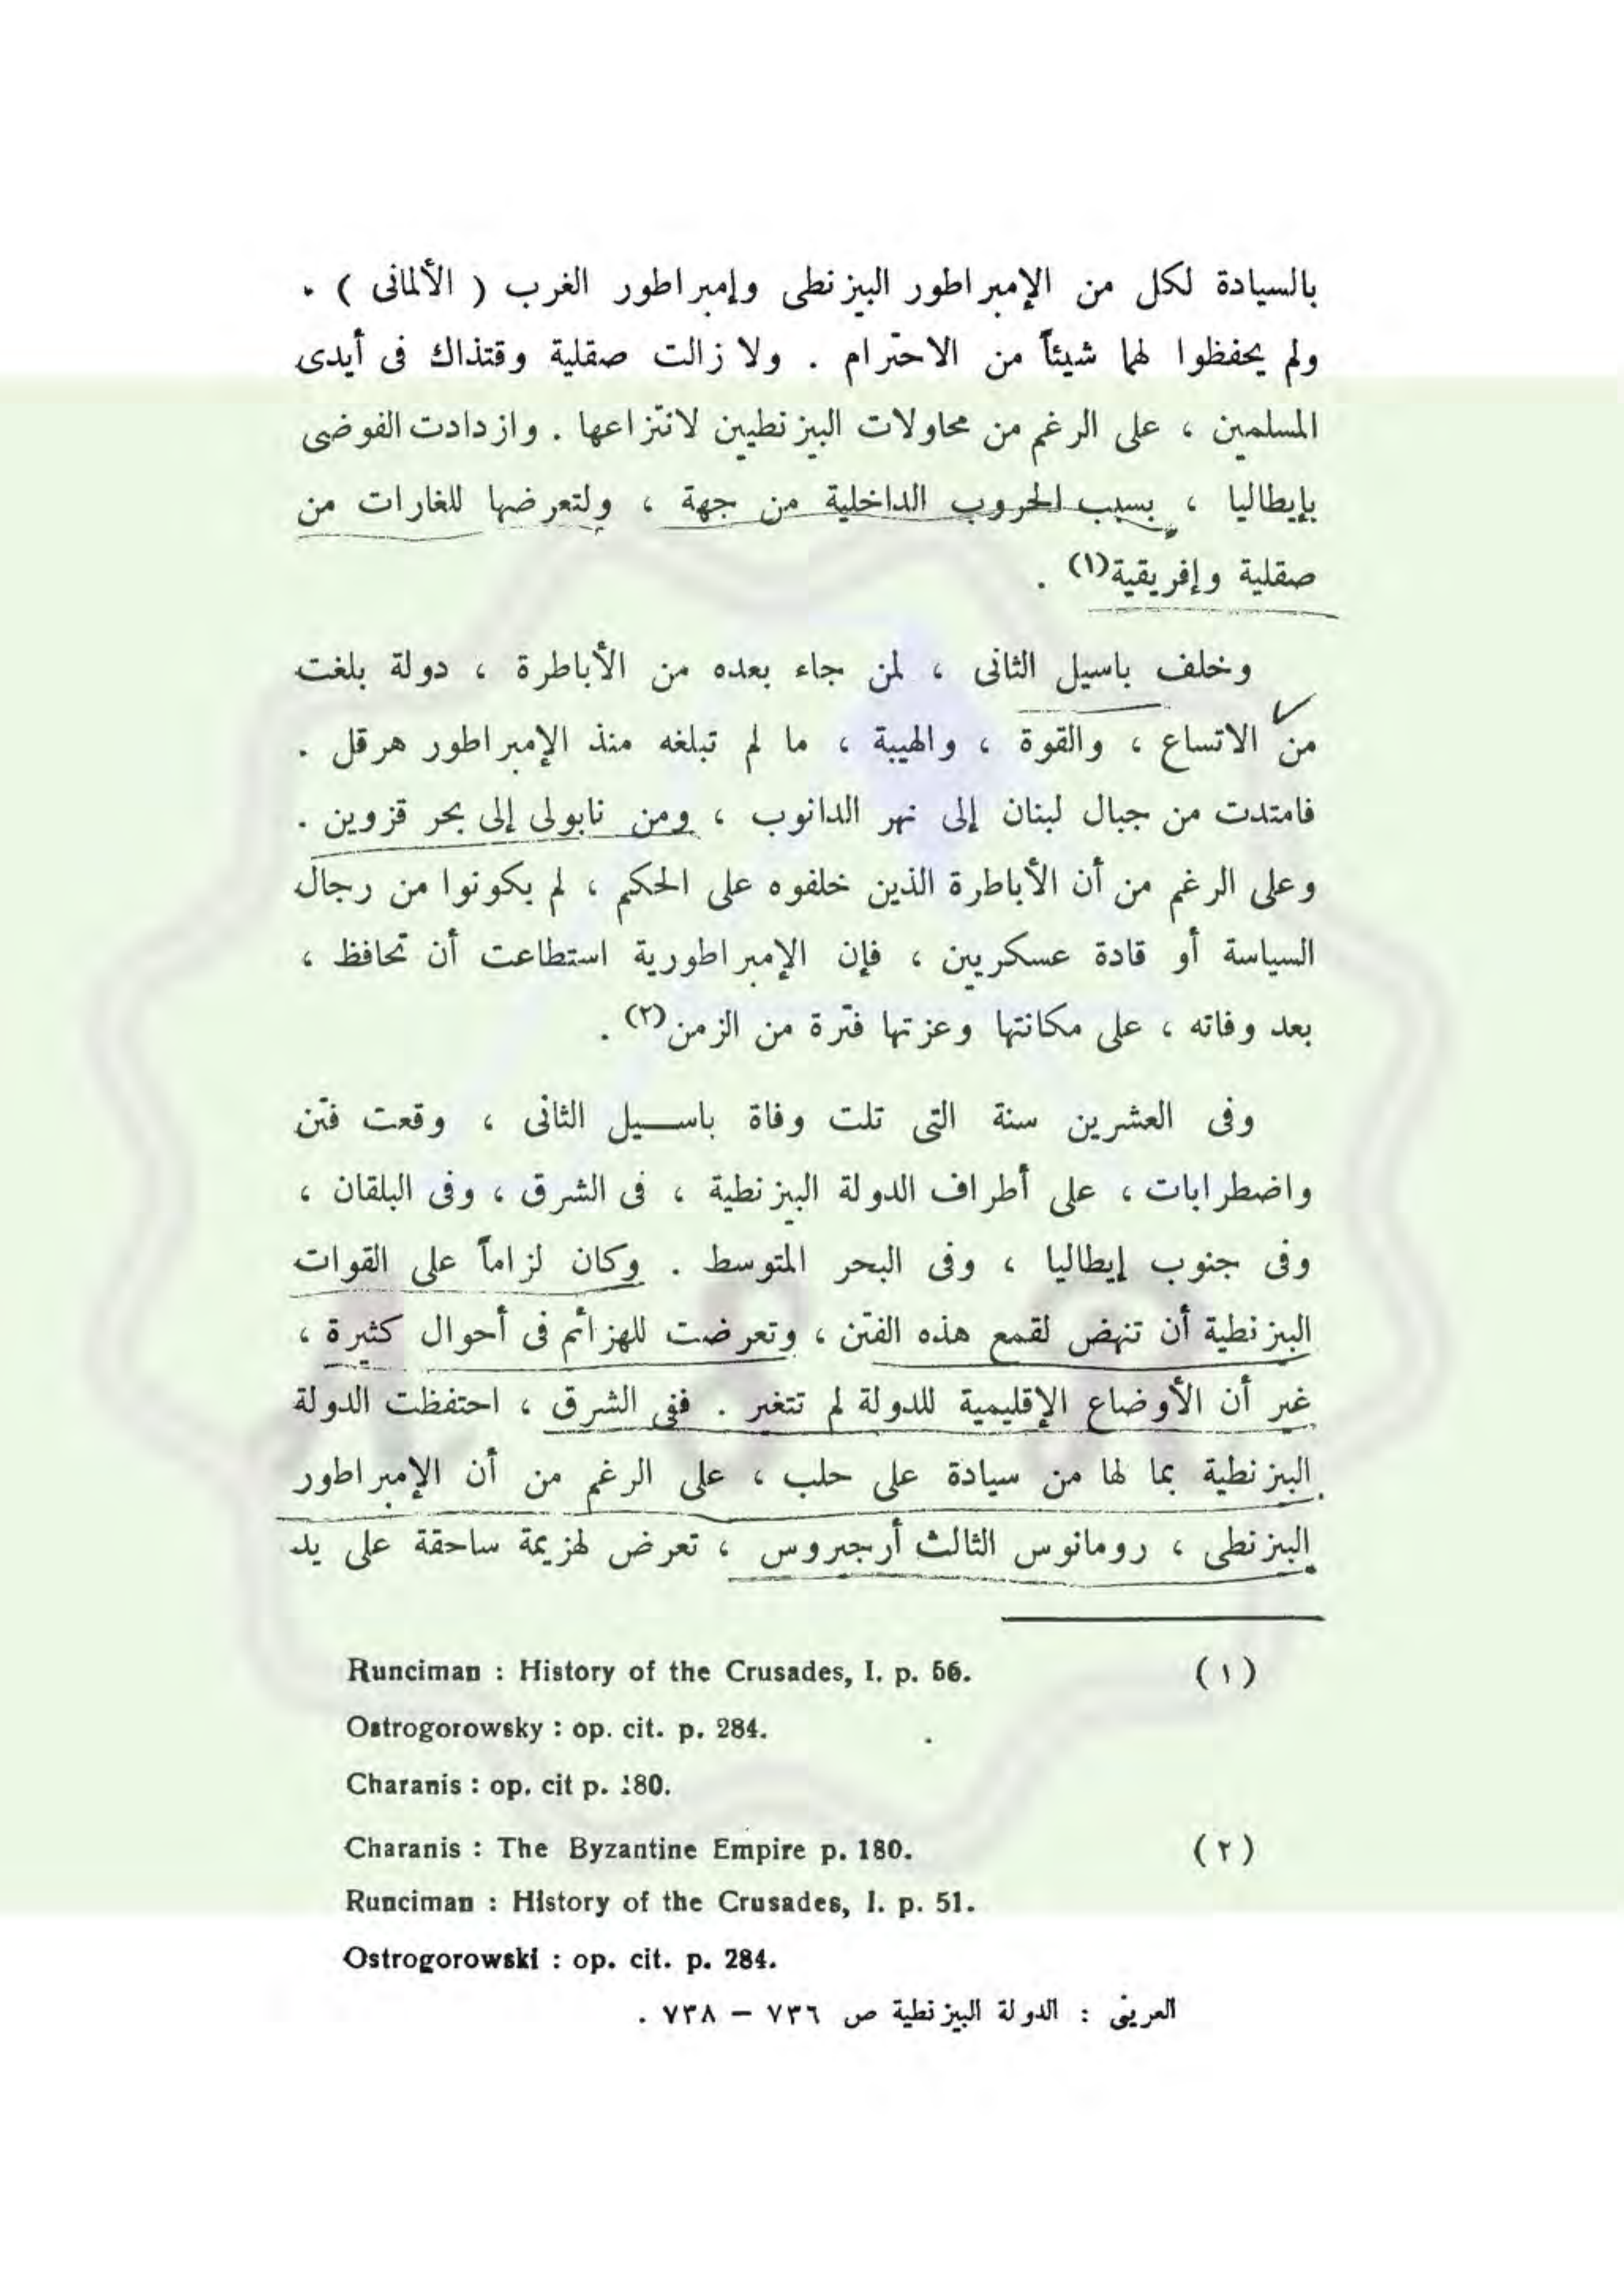 بالسيادة لكل من الإمبراطور البيزنطى وإمبراطور الغرب ( الألمانى ) .
ولم يحفظوا لهما شيئاً من الاحترام . ولا زالت صقلية وقتذاك فى أيدى
المسلمين ، على الرغم من محاولات البيزنطيين لانتزاعها . وازدادت الفوضى
بإيطاليا ، بسبب الحروب الداخلية من جهة ، ولتعرضها للغارات من
صقلية وإفريقية(١) .
وخلف باسيل الثانى ، لمن جاء بعده من الأباطرة ، دولة بلغت
من الاتساع ، والقوة ، والهيبة ، ما لم تبلغه منذ الإمبراطور هرقل .
فامتدت من جبال لبنان إلى نهر الدانوب ، ومن نابولى إلى بحر قزوين .
وعلى الرغم من أن الأباطرة الذين خلفوه على الحكم ، لم يكونوا من رجال
السياسة أو قادة عسكريين ، فإن الإمبراطورية استطاعت أن تحافظ ،
بعد وفاته ، على مكانتها وعزتها فترة من الزمن(٢) .
وفى العشرين سنة التى تلت وفاة باسيل الثانى ، وقعت فتن
واضطرابات ، على أطراف الدولة البيزنطية ، فى الشرق ، وفى البلقان ،
وفى جنوب إيطاليا ، وفى البحر المتوسط . وكان لزاماً على القوات
البيزنطية أن تنهض لقمع هذه الفتن ، وتعرضت للهزائم فى أحوال كثيرة ،
غير أن الأوضاع الإقليمية للدولة لم تتغير . ففى الشرق ، احتفظت الدولة
البيزنطية بما لها من سيادة على حلب ، على الرغم من أن الإمبراطور
البيزنطى ، رومانوس الثالث أرجيروس ، تعرض لهزيمة ساحقة على يد
(١) Runciman : History of the Crusades, I. p. 56.
Ostrogorowsky : op. cit. p. 284.
Charanis : op. cit p. 180.
(٢) Charanis : The Byzantine Empire p. 180.
Runciman : History of the Crusades, I. p. 51.
Ostrogorowski : op. cit. p. 284.
العرينى : الدولة البيزنطية ص ٧٣٦ — ٧٣٨ .